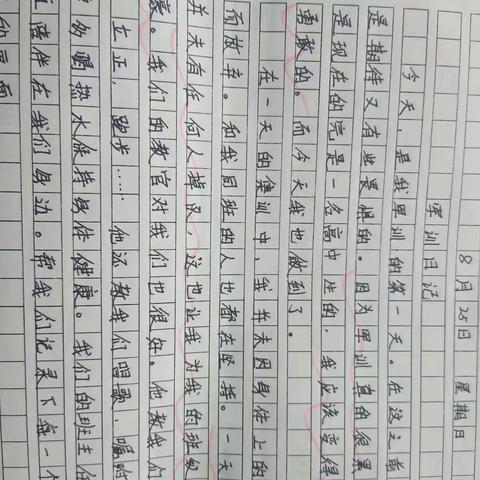 8月25日 星期日
军训日记
今天,是我军训的第一天。在这之前
是期待又有些畏惧的。因为军训真的很累
是现在的完是一名高中生的,我应该变得
勇敢的。而今天我也做到了。
在一天的集训中,我并未因身体上的
而放弃。和我同班的人也都在坚持。一天
并未有任何人掉队,这也让我为我的班级
豪。我们的教官对我们也很好。他教我们
立正,跑步……他还教我们唱歌,嘱咐
多喝热水保持身体健康。我们的班主任
陪伴在我们身边。帮我们记录下每一个